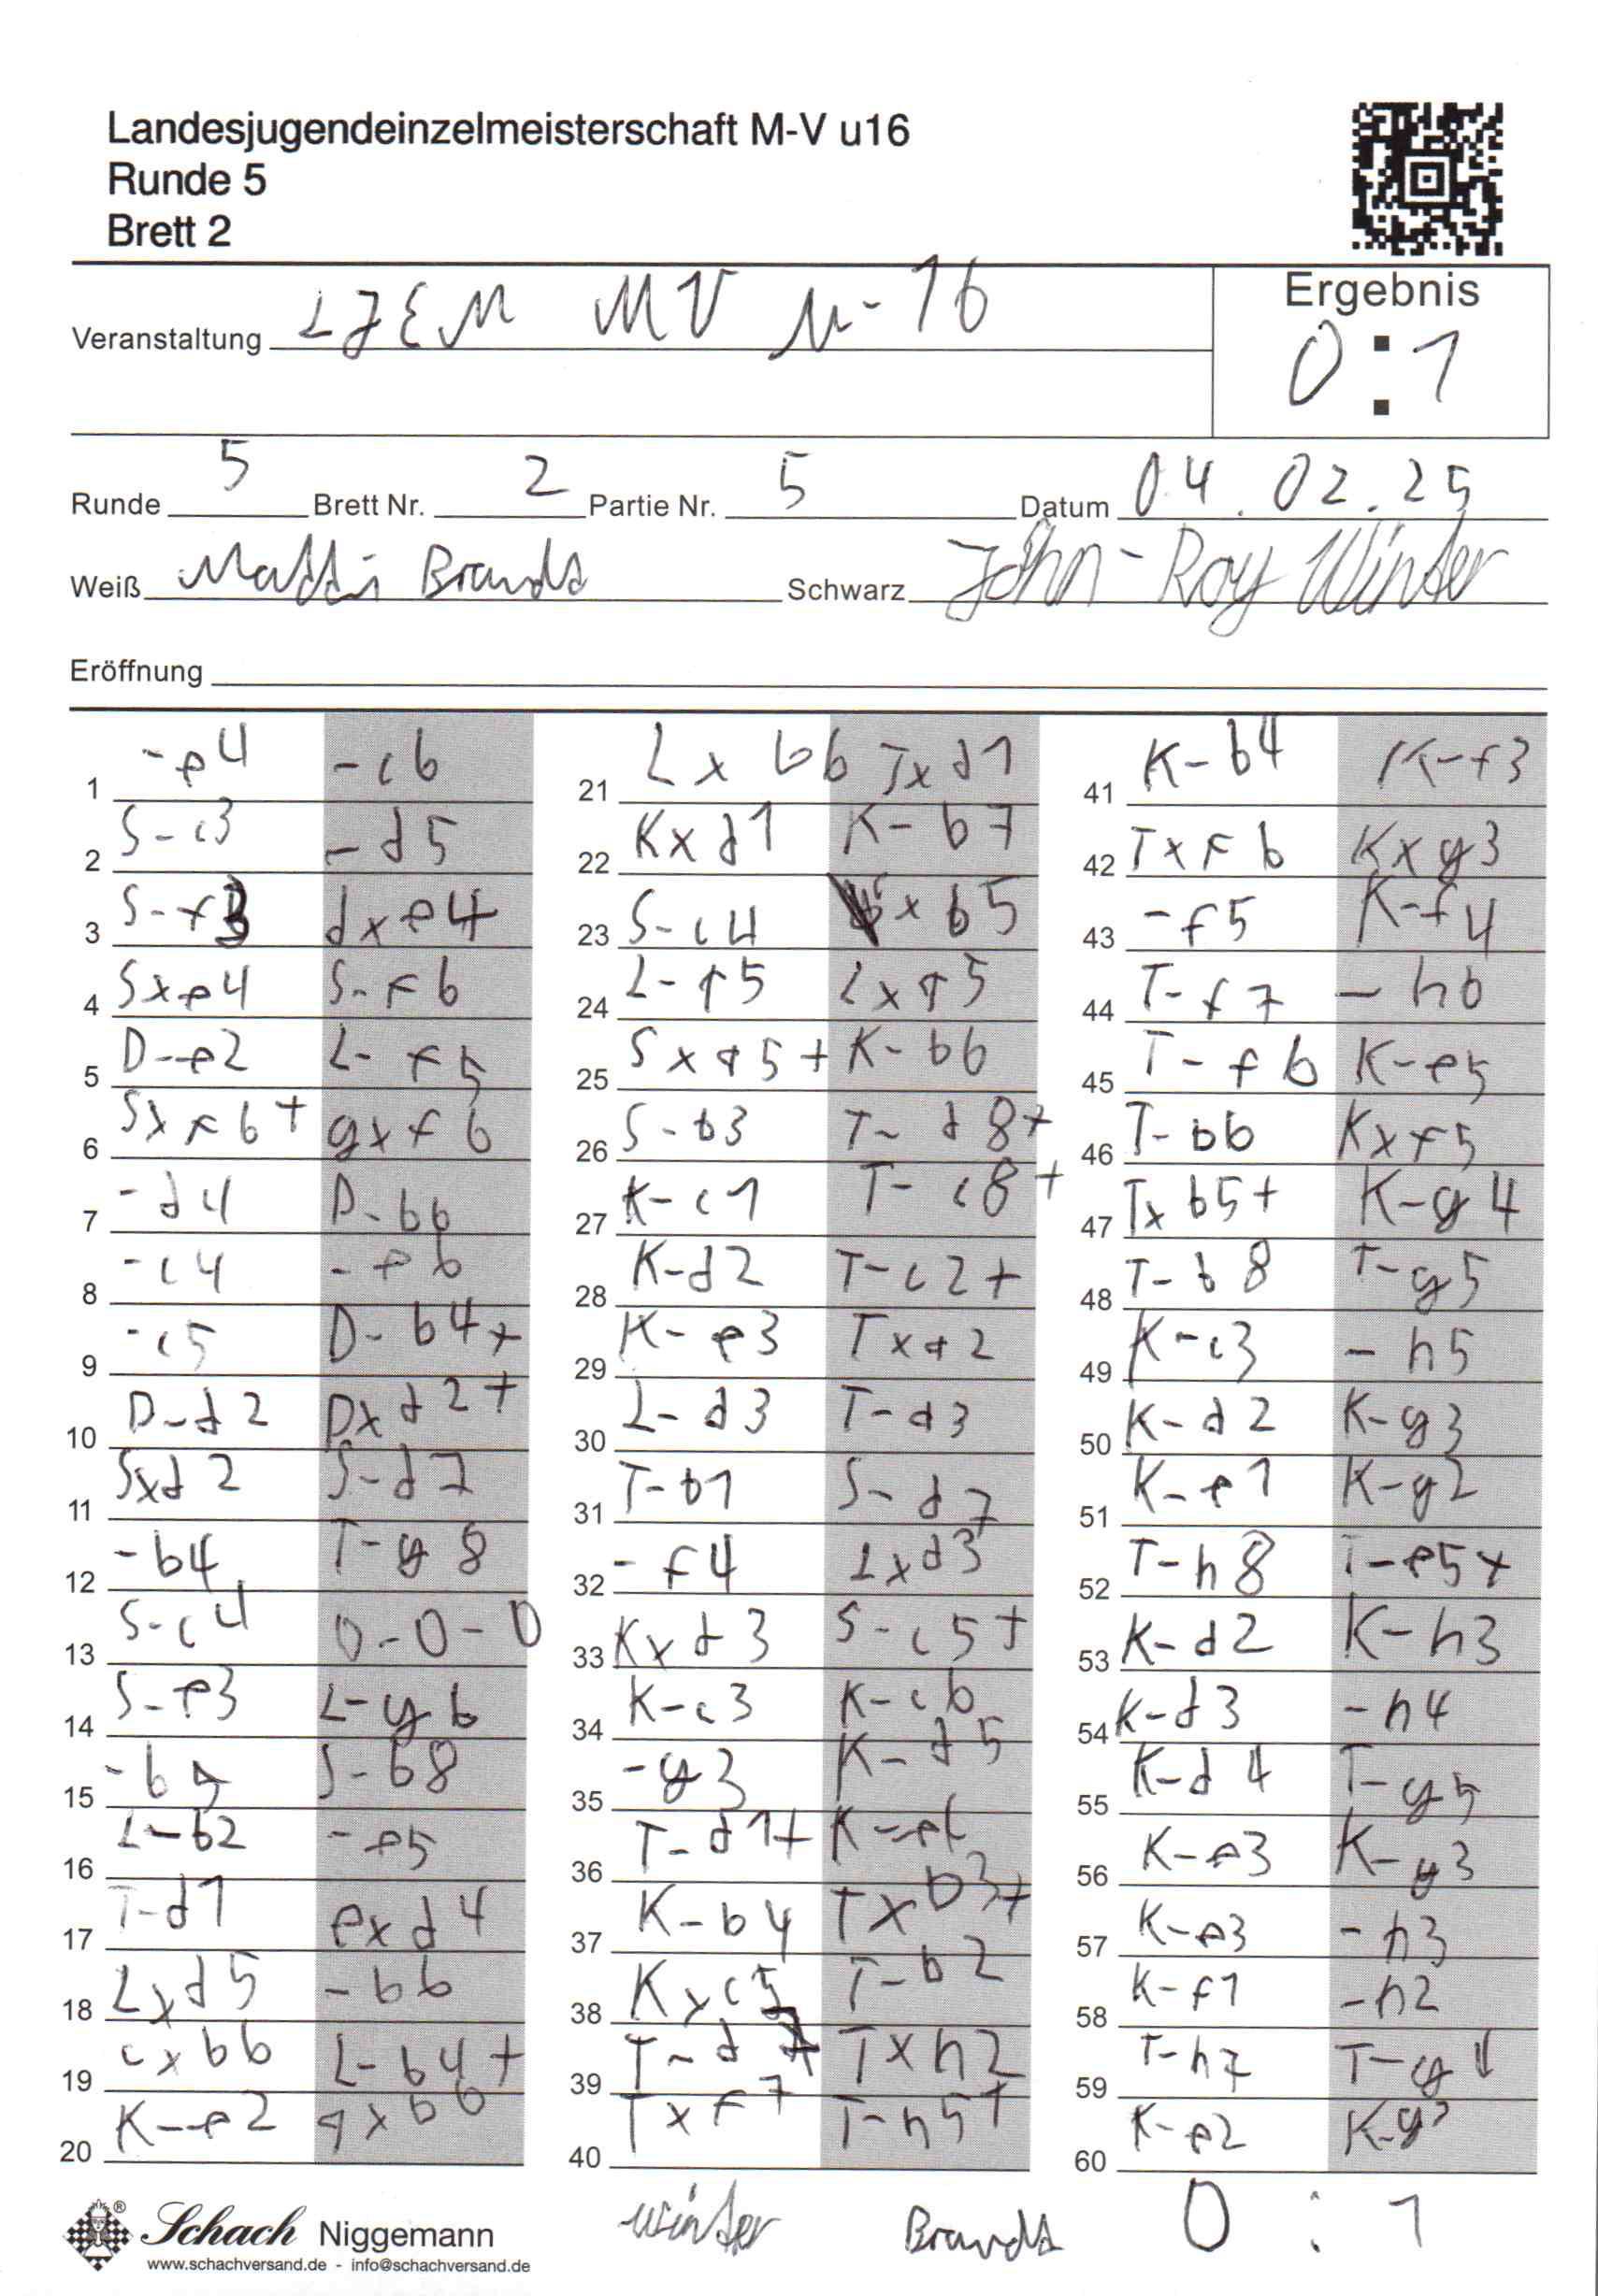 Landesjugendeinzelmeisterschaft M-V u16
Runde 5
Brett 2
Ergebnis
0 : 1
Veranstaltung LJEM MV u-16
Runde 5 Brett Nr. 2 Partie Nr. 5 Datum 04.02.25
Weiß Matti Brandt Schwarz John-Roy Winter
Eröffnung
1 -e4 -c6
2 S-c3 -d5
3 S-f3 dxe4
4 Sxe4 S-f6
5 D-e2 L-f5
6 Sxf6+ gxf6
7 -d4 D-b6
8 -c4 -e6
9 -c5 D-b4+
10 D-d2 Dxd2+
11 Sxd2 S-d7
12 -b4 T-g8
13 S-c4 0-0-0
14 S-e3 L-g6
15 -b5 S-b8
16 L-b2 -e5
17 T-d1 exd4
18 Lxd5 -b6
19 cxb6 L-b4+
20 K-e2 axb6
21 Lxb6 Txd1
22 Kxd1 K-b7
23 S-c4 xb5
24 L-a5 Lxa5
25 Sxa5+ K-b6
26 S-b3 T-d8+
27 K-c1 T-c8+
28 K-d2 T-c2+
29 K-e3 Txa2
30 L-d3 T-a3
31 T-b1 S-d7
32 -f4 Lxd3
33 Kxd3 S-c5+
34 K-c3 K-c6
35 -g3 K-d5
36 T-d1+ K-e6
37 K-b4 Txb3+
38 Kxc5 T-b2
39 T-d7 Txh2
40 Txf7 T-h5+
41 K-b4 K-f3
42 Txf6 Kxg3
43 -f5 K-f4
44 T-f7 -h6
45 T-f6 K-e5
46 T-b6 Kxf5
47 Txb5+ K-g4
48 T-b8 T-g5
49 K-c3 -h5
50 K-d2 K-g3
51 K-e1 K-g2
52 T-h8 T-e5+
53 K-d2 K-h3
54 K-d3 -h4
55 K-d4 T-g5
56 K-e3 K-g3
57 K-e3 -h3
58 K-f1 -h2
59 T-h7 T-g
60 K-e2 K-g
Winter Brandt 0 : 1
Schach Niggemann
www.schachversand.de - info@schachversand.de